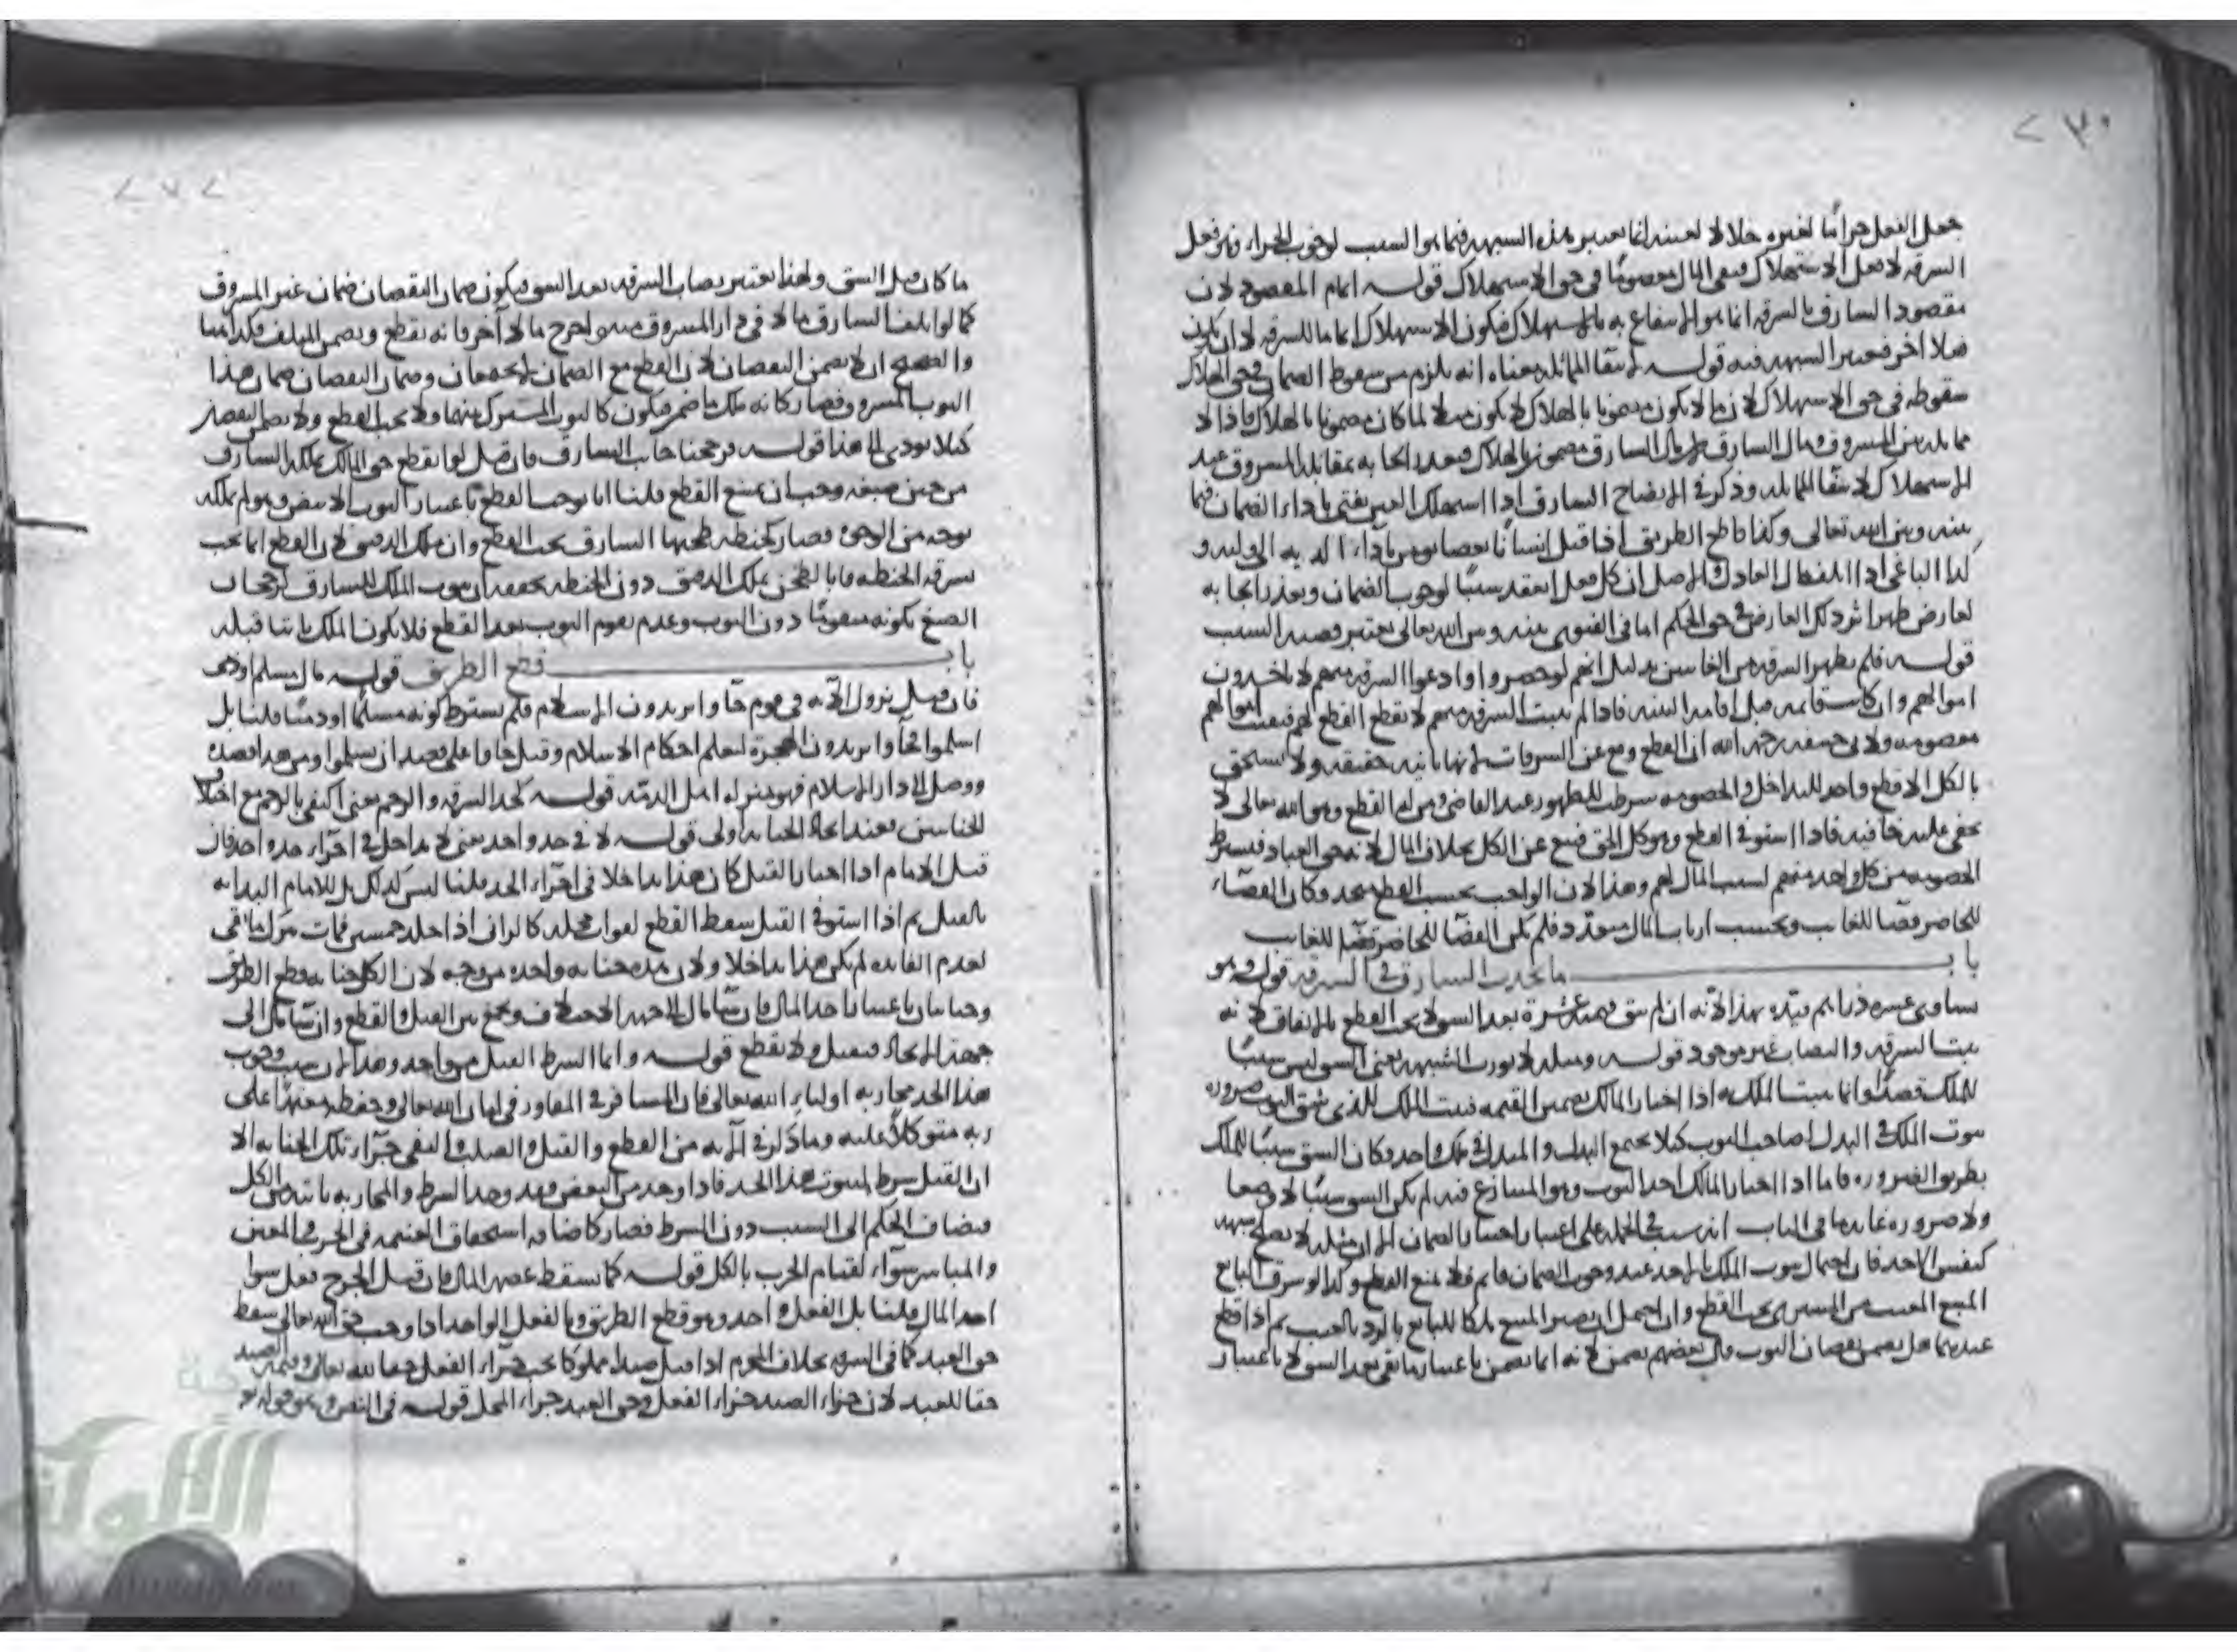 ٢٣٠
جعل الفعل حراما لغيره خلالا لعينه انما يعتبر هذه الشبهه فيما هو السبب لوجوب الجزاء وهو فعل
السرقه لا فعل الاستهلاك فبقى المال معصوما فى حق الاستهلاك قوله اتمام المقصود لان
مقصود السارق بالسرقه انما هو الانتفاع به بالاستهلاك فيكون الاستهلاك اتماما للسرقه لا ان يكون
فعلا اخر فيعتبر الشبهه فيه قوله لانتفا المماثله معناه انه يلزم من سقوط الضمان فى حق الهلاك
سقوطه فى حق الاستهلاك لان ما لا يكون مضمونا بالهلاك لا يكون مثلا لما كان مضمونا بالهلاك فاذا لا
مماثله بين المسروق ومال السارق لان مال السارق مضمون بالهلاك فتعذر ايجابه بمقابله المسروق عند
الاستهلاك لانتفا المماثله وذكر فى الايضاح السارق اذا استهلك العين يفتى باداء الضمان فيما
بينه وبين الله تعالى وكذا قاطع الطريق اذا قتل انسانا بعصا يومر باداء الديه الى وليه و
كذا الباغى اذا اتلف مال العادل والاصل ان كل فعل انعقد سببا لوجوب الضمان وتعذر ايجابه
لعارض ظهر اثر ذلك العارض فى حق الحكم اما فى الفتوى بينه وبين الله تعالى يعتبر قضيه السبب
قوله فلم يظهر السرقه من الغائبين بدليل انهم لو حضروا وادعوا السرقه منهم لا ياخذون
اموالهم وان كانت قائمه قبل اقامه البينه فاذا لم يثبت السرقه منهم لا يقطع القطع لهم فبقيت اموالهم
معصومه ولابى حنيفه رحمه الله ان القطع وقع عن السرقات لانها ثابته حقيقه ولا يستحق
بالكل الا قطع واحد للتداخل والخصومه شرطت للظهور عند القاضى ومن له القطع وهو الله تعالى لا
يخفى عليه خافيه فاذا استوفى القطع وهو كل الحق فيقع عن الكل بخلاف المال لانه حق العباد فيشترط
الخصومه من كل واحد منهم لسبب المال لهم وهذا لان الواجب بحسب القطع متحد وكان القضاء
للحاضر قضا للغائب وبحسب ارباب المال متعدد فلم يكن القضا للحاضر قضا للغائب
باب ما يحدث السارق فى السرقه قوله وهو
يساوى عشره دراهم قيده بهذا لانه ان لم يبق قيمته عشرة بعد الشق لا يجب القطع بالاتفاق لانه
يثبت السرقه والنصاب غير موجود قوله ومثله لا يورث الشبهه يعنى الشق ليس سببا
للملك قصدا وانما يثبت الملك به اذا اختار المالك تضمين القيمه فيثبت الملك للذى شق الثوب ضروره
ثبوت الملك فى البدل لصاحب الثوب كيلا يجتمع البدل والمبدل فى ملك واحد وكان الشق سببا للملك
بطريق الضروره فاما اذا اختار المالك اخذ الثوب وهو المتنازع فيه لم يكن الشق سببا لا وضعا
ولا ضروره غايه ما فى الباب انه سبب فى الجمله على اعتبار اختيار الضمان الا ان مثله لا يصلح شبهه
كنفس الاخذ فان احتمال ثبوت الملك بالاخذ عند وجوب الضمان قائم فلا يمنع القطع وكذا لو سرق البائع
المبيع المعيب من المشترى يجب القطع وان احتمل ان يصير المبيع ملكا للبائع بالرد بالعيب ثم اذا قطع
عندهما هل يضمن نقصان الثوب قال بعضهم يضمن لانه انما يضمن باعتبار ما بقى بعد الشق لا باعتبار
٢٧٢
ما كان قبل الشق ولهذا يعتبر نصاب السرقه بعد الشق فيكون ضمان النقصان ضمان غير المسروق
كما لو اتلف السارق مالا فى دار المسروق منه واخرج مالا آخر فانه يقطع ويضمن المتلف فكذا هنا
والصحيح ان لا يضمن النقصان لان القطع مع الضمان لا يجتمعان وضمان النقصان ضمان هذا
الثوب المسروق فصار كانه ملك ما ضمن فيكون كالثوب المشترك بينهما ولا يجب القطع ولا يضمن النقصان
كيلا يودى الى هذا قوله فرجحنا جانب السارق فان قيل لو انقطع حق المالك بملك السارق
من حين صبغه وجب ان يمتنع القطع قلنا انا نوجب القطع باعتبار الثوب الابيض وهو لم يملكه
بوجه من الوجوه فصار كحنطه طحنها السارق يجب القطع وان ملك الدقيق لان القطع انما يجب
بسرقه الحنطه فاما بالطحن يملك الدقيق دون الحنطه يحققه ان ثبوت الملك للسارق لرجحان
الصبغ بكونه متقوما دون الثوب وعدم تقوم الثوب بعد القطع فلا يكون الملك ثابتا قبله
باب قطع الطريق قوله مال مسلم او ذمى
فان قيل نزول الآيه فى قوم جآوا يريدون الاسلام فلم يشترط كونه مسلما او ذميا قلنا بل
اسلموا فجآوا يريدون الهجرة لتعلم احكام الاسلام وقيل جاوا على قصد ان يسلموا ومن هذا قصده
ووصل الى دار الاسلام فهو بمنزله اهل الذمه قوله كحد السرقه والرجم يعنى اكتفى بالرجم مع اختلاف
الجنايتين فعند اتحاد الجنايه اولى قوله لا فى حد واحد يعنى لا تداخل فى اجزاء حد واحد فان
قيل الامام اذا اختار القتل كان هذا تداخلا فى اجزاء الحد قلنا ليس كذلك بل للامام البدايه
بالقتل ثم اذا استوفى القتل سقط القطع لفوات محله كالزانى اذا جلد خمسين فمات ترك ما بقى
لعدم الفائده لم يكن هذا تداخلا ولان هذه جنايه واحده من وجه لان الكل جنايه قطع الطريق
وجنايتان باعتبار اخذ المال فان شا مال الى جهه الاختلاف وجمع بين القتل والقطع وان شا مال الى
جهه الاتحاد فيقتل ولا يقطع قوله وانما الشرط القتل من واحد وهذا لان سبب وجوب
هذا الحد محاربه اولياء الله تعالى فان المسافر فى المفاوز فى امان الله تعالى وحفظه معتمدا على
ربه متوكلا عليه وما ذكر فى الآيه من القطع والقتل والصلب والنفى جزاء تلك الجنايه الا
ان القتل شرط لثبوت هذا الحد فاذا وجد من البعض وجد الشرط والمحاربه ثابته من الكل
فيضاف الحكم الى السبب دون الشرط فصار كاضافه استحقاق الغنيمه فى الحرب المعين
والمباشر سواء لقيام الحرب بالكل قوله كما تسقط عصمه المال فان قيل الجرح فعل سوا
اخذ المال قلنا بل الفعل واحد وهو قطع الطريق وبالفعل الواحد اذا وجب حق الله تعالى سقط
حق العبد كما فى السرقه بخلاف المحرم اذا قتل صيدا مملوكا يجب جزاء الفعل حقا لله تعالى وقيمه الصيد
حقا للعبد لان جزاء الصيد جزاء الفعل وحق العبد جزاء المحل قوله فى النفس